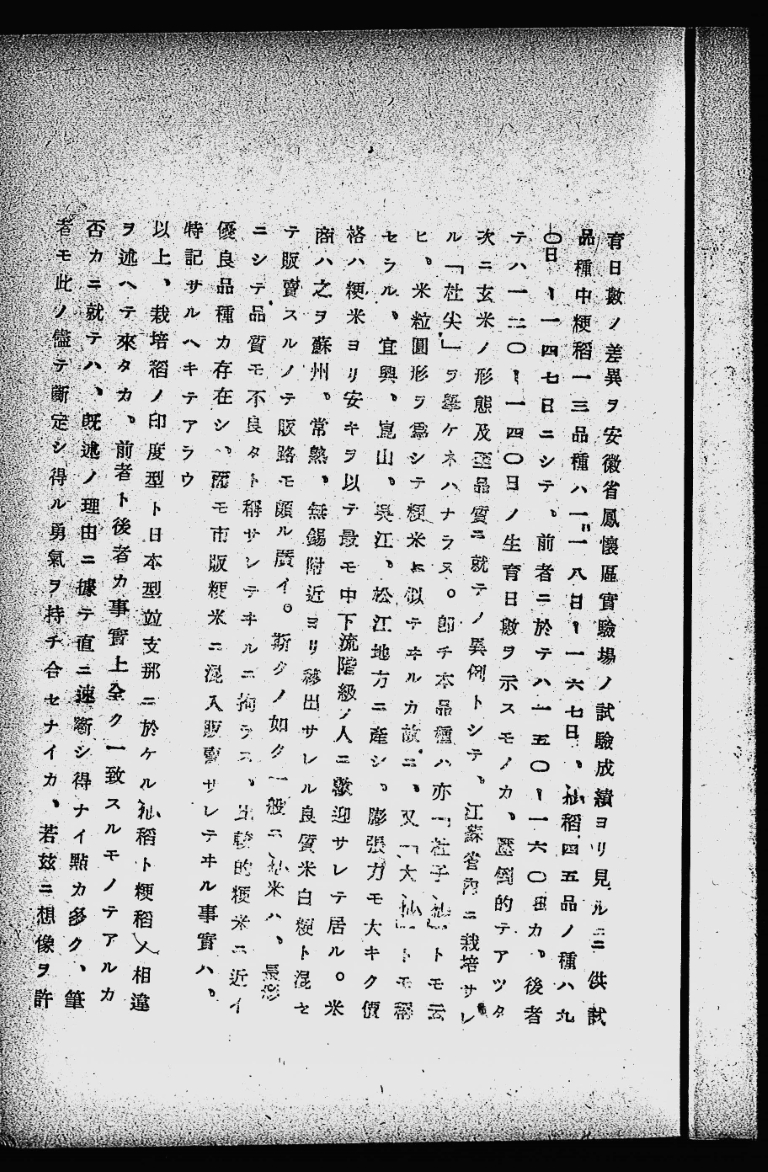 育日數ノ差異ヲ安徽省鳳懷區實驗場ノ試驗成績ヨリ見ルニ供試
品種中粳稻一三品種ハ一一八日ー一六七日、籼稻四五品ノ種ハ九
〇日ー一四七日ニシテ、前者ニ於テハ一五〇ー一六〇日カ、後者
テハ一二〇ー一四〇日ノ生育日數ヲ示スモノカ、壓倒的テアツタ
次ニ玄米ノ形態及品質ニ就テノ異例トシテ、江蘇省內ニ栽培サレ
ル「杜尖」ヲ擧ケネハナラヌ。卽チ本品種ハ亦「杜子籼」トモ云
ヒ、米粒圓形ヲ爲シテ粳米ニ似テヰルカ故ニ、又「大籼」トモ稱
セラル、宜興、崑山、吳江、松江地方ニ產シ、膨張力モ大キク價
格ハ粳米ヨリ安キヲ以テ最モ中下流階級ノ人ニ歡迎サレテ居ル。米
商ハ之ヲ蘇州、常熟、無錫附近ヨリ移出サレル良質米白粳ト混セ
テ販賣スルノテ販路モ頗ル廣イ。斯クノ如ク一般ニ籼米ハ、長形
ニシテ品質モ不良タト稱サレテヰルニ拘ラス、比較的粳米ニ近イ
優良品種カ存在シ、而モ市販粳米ニ混入販賣サレテヰル事實ハ、
特記サルヘキテアラウ
以上、栽培稻ノ印度型ト日本型竝支那ニ於ケル籼稻ト粳稻ノ相違
ヲ述ヘテ來タカ、前者ト後者カ事實上全ク一致スルモノテアルカ
否カニ就テハ、旣述ノ理由ニ據テ直ニ速斷シ得ナイ點カ多ク、筆
者モ此ノ儘テ斷定シ得ル勇氣ヲ持チ合セナイカ、若玆ニ想像ヲ許